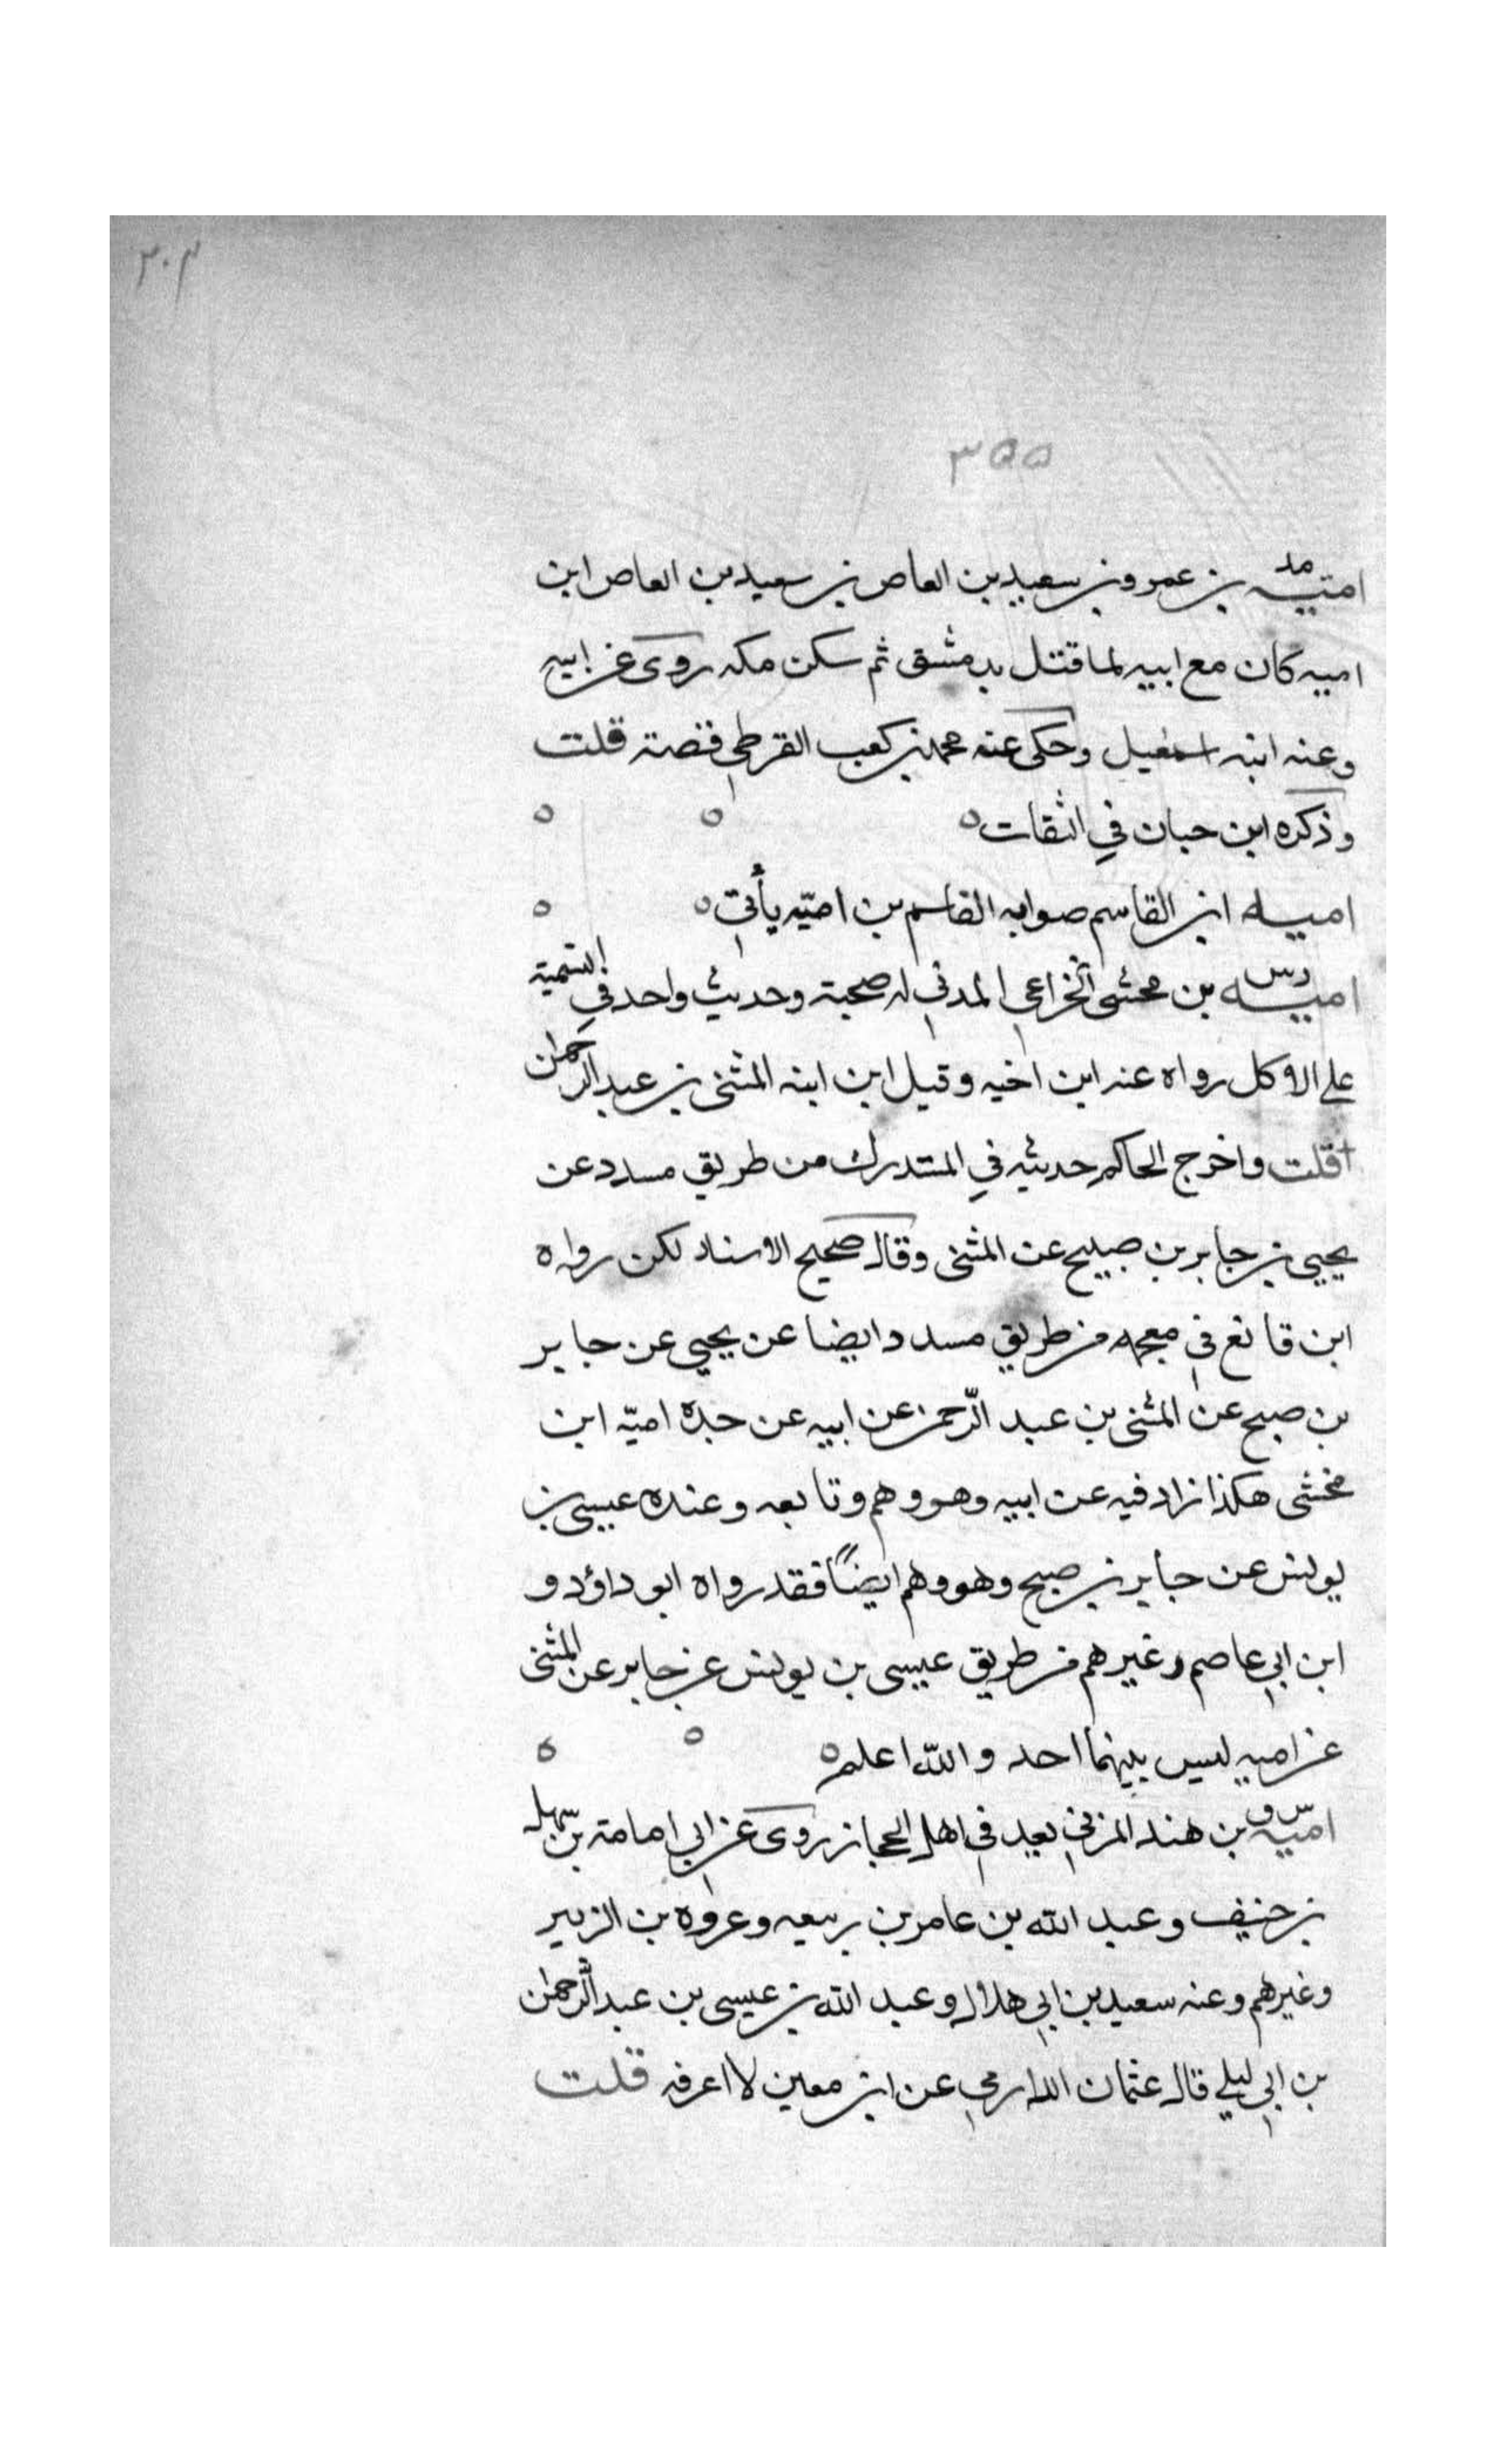 ٣٠٣
٣٥٥
اميه مد بن عمرو بن سعيد بن العاص بن سعيد بن العاص ابن
اميه كان مع ابيه لما قتل بدمشق ثم سكن مكه روى عن ابيه
وعنه ابنه اسمعيل وحكى عنه محمد بن كعب القرظي قصة قلت
وذكره ابن حبان في الثقات ه ه ه
اميه ابن القاسم صوابه القاسم بن اميّه يأتي ه ه
اميه دس بن مخشى الخزاعي المدني له صحبة وحديث واحد في التسمية
على الاكل رواه عنه ابن اخيه وقيل ابن ابنه المثنى بن عبد الرحمن
قلت واخرج الحاكم حديثه في المستدرك من طريق مسدد عن
يحيى بن جابر بن صبيح عن المثنى وقال صحيح الاسناد لكن رواه
ابن قانع في معجمه من طريق مسدد ايضا عن يحيى عن جابر
بن صبح عن المثنى بن عبد الرّحمن عن ابيه عن جده اميّه ابن
مخشى هكذا زاد فيه عن ابيه وهو وهم وتابعه وعنده عيسى بن
يونس عن جابر بن صبح وهو وهم ايضًا فقد رواه ابو داؤد و
ابن ابي عاصم وغيرهم من طريق عيسى بن يونس عن جابر عن المثنى
عن اميه ليس بينهما احد والله اعلم ه ه ه
اميّه س ق بن هند المزني يعد في اهل الحجاز روى عن ابي امامة بن سهل
بن حنيف وعبد الله بن عامر بن ربيعه وعروه بن الزبير
وغيرهم وعنه سعيد بن ابي هلال وعبد الله بن عيسى بن عبد الرحمن
بن ابي ليلى قال عثمان الدارمي عن ابن معين لا اعرفه قلت